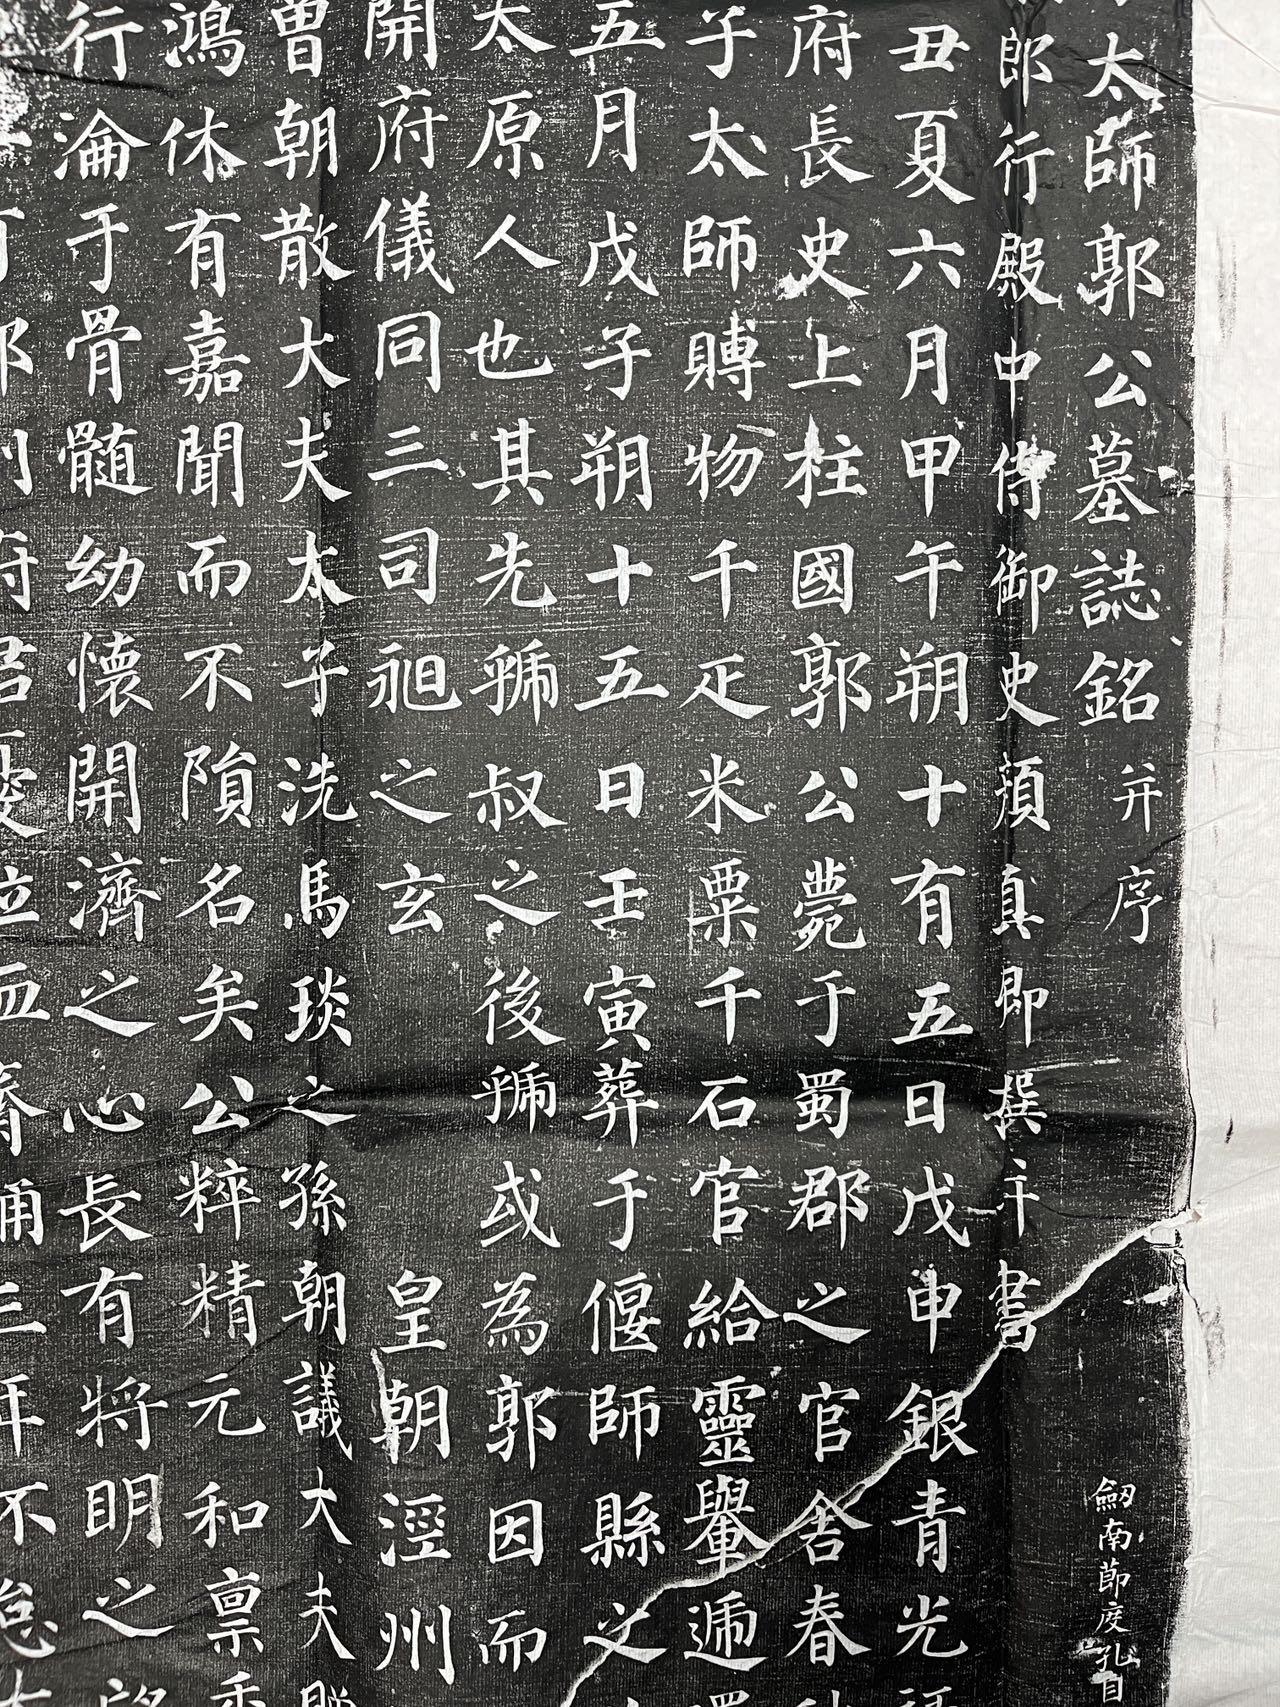 太師郭公墓誌銘并序
劒南節度孔目
郎行殿中侍御史顏真卿撰并書
丑夏六月甲午朔十有五日戊申銀青光
府長史上柱國郭公薨于蜀郡之官舍春
子太師賻物千疋米粟千石官給靈轝遞還
五月戊子朔十五日壬寅葬于偃師縣之
太原人也其先虢叔之後虢或為郭因而
開府儀同三司昶之玄 皇朝涇州
曾朝散大夫太子洗馬琰之孫朝議大夫贈
鴻休有嘉聞而不隕名矣公粹精元和稟秀
行淪于骨髓幼懷開濟之心長有將明之望